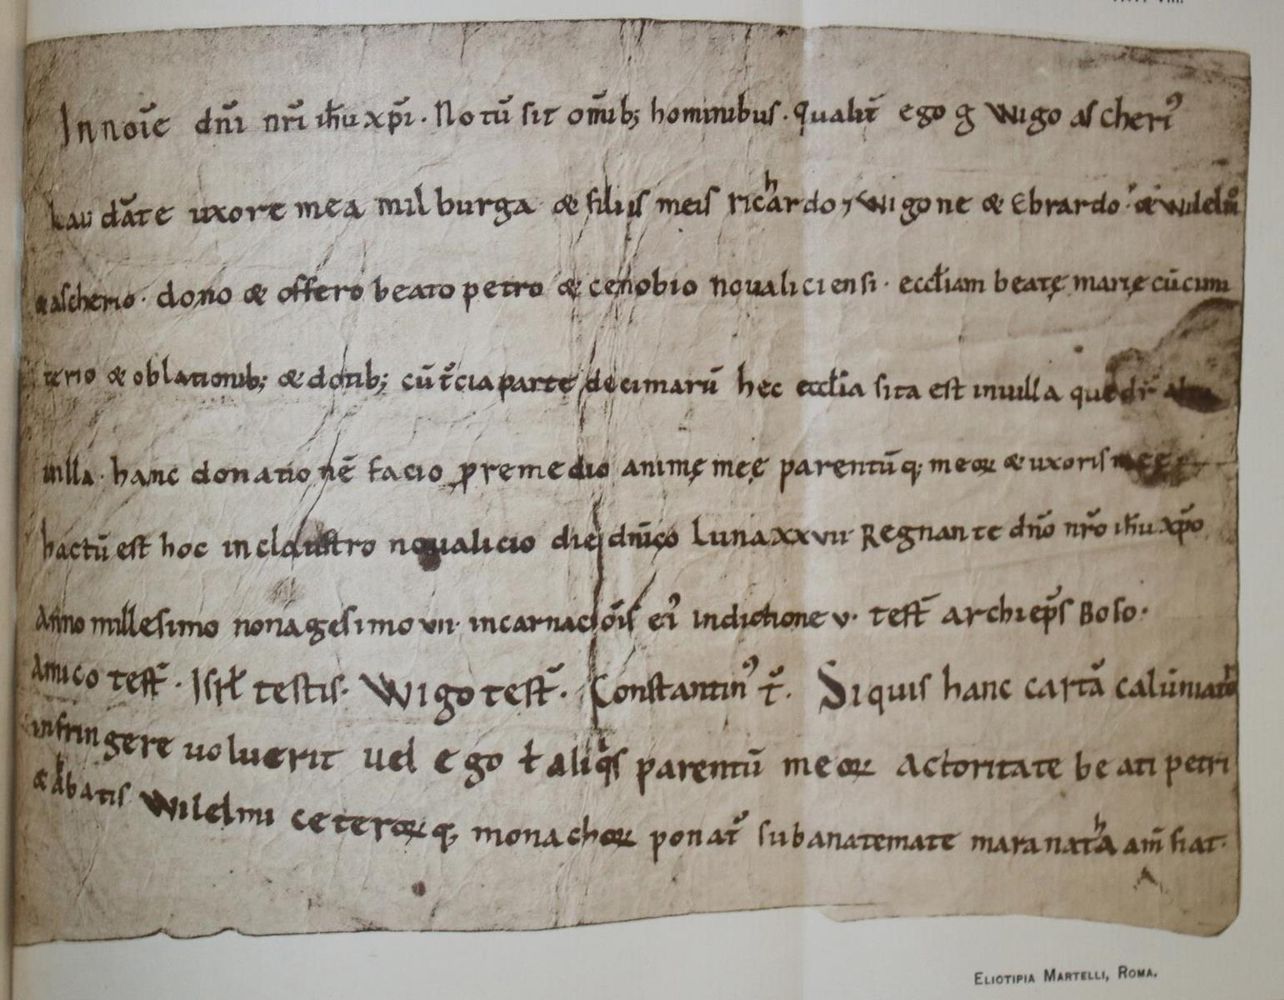 In noīe dn̄i nr̄i ih̄u xp̄i. Notū sit om̄ib; hominibus. qualit̄ ego g Wigo ascheri᾽
Laudāte uxore mea milburga & filiis meis richardo ⁊ Wigone & Ebrardo & wilelm̊
& ascherio. dono & offero beato petro & cenobio noualiciensi. eccłiam beatę marię cū cimi
terio & oblationib; & dotib; cū t̄cia parte decimarū hec eccłia sita est in uilla que dr̄
uilla. hanc donationē facio ꝓ remedio animę meę parentūq; meoꝝ & uxoris meę
hactū est hoc in claustro noualicio die dn̄ico Luna xxvii Regnante dn̄o nr̄o ih̄u xp̄o
Anno millesimo nonagesimo vii. incarnaciōis ei᾽ indictione v. test̄ archiep̄s Boso.
Amico test̄. Isrł testis. Wigo test̄. Constantin᾽ t̄. Si quis hanc cartā
infringere uoluerit uel ego ł aliq̄s parentū meoꝝ actoritate beati petri
& abbatis Wilelmi ceteroꝝq; monachoꝝ ponat̄ sub anatemate maranatha am̄ fiat.
Eliotipia Martelli, Roma.